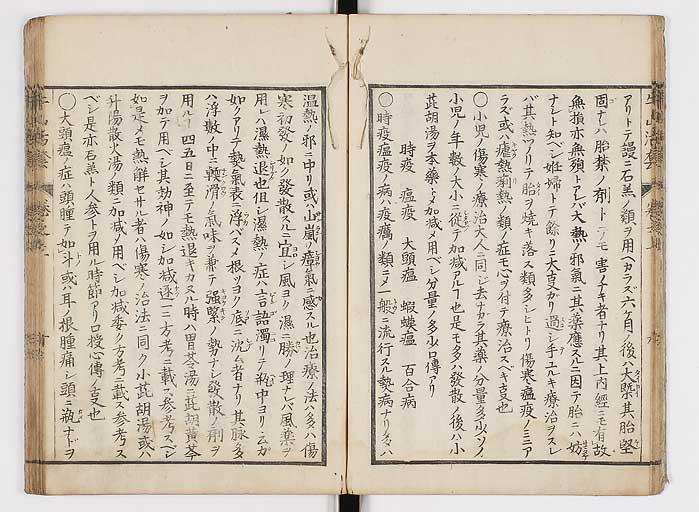 アリトテ謾ニ石羔ノ類ヲ用ベカラズ六ケ月ノ後ハ大槩其胎堅
固ナレハ胎禁ノ劑トテモ害ナキ者ナリ其上内經ニモ有故
無損亦無殞トアレバ大熱ノ邪氣ニ其藥應スルニ因テ胎ニハ妨
ナシト知ベシ姙婦トテ餘リニ大事ガリ過シ手ユルキ療治ヲスレ
バ其熱ツノリテ胎ヲ焼キ落ス類多シヒトリ傷寒瘟疫ノミニア
ラズ或ハ瘧熱痢熱ノ類ノ症モ心ヲ付テ療治スベキ事也
〇小児ノ傷寒ノ療治大人ニ同シ去ナカラ其藥ノ分量多少ソノ
小児ノ年數ノ大小ニ從テ加減アルヿ也是モ多クハ發散ノ後ハ小
茈胡湯ヲ本藥トメ加減メ用ベシ分量ノ多少口傳アリ
時疫 瘟疫 大頭瘟 蝦蟆瘟 百合病
〇時疫瘟疫ノ病ハ疫癘ノ類ニメ一般ニ流行スル熱病ナリ多クハ
温熱ノ邪ニ中リ或ハ山嵐ノ瘴氣ニ感スル也治療ノ法ハ多ハ傷
寒初發ノ如ク發散スルニ宜シ風ヨク濕ニ勝ノ理ナレバ風藥ヲ
用レハ濕熱退也但シ濕熱ノ症ハ言語濁リテ瓶中ヨリ云ガ
如クアリテ熱氣表ニ浮バスメ根ツヨク底ニ沈ム者ナリ其脉多ク
ハ浮數ノ中ニ輭滑ノ氣味ヲ兼テ強緊ノ勢ナシ發散ノ劑ヲ
用ルヿ四五日ニ至テモ熱退キカヌル時ハ胃苓湯ニ茈胡黄芩
ヲ加テ用ベシ其効神ノ如シ加減逐一ニ方考ニ載ス参考スベシ
如是メモ熱解セサル者ハ傷寒ノ治法ニ同ク小茈胡湯或ハ
升陽散火湯ノ類ニ加減ノ用ベシ加減委ク方考ニ載ス参考ス
ベシ是亦石羔ト人参トヲ用ル時節アリ口授心傳ノ事也
〇大頭瘟ノ症ハ頭腫テ如斗或ハ耳ノ根腫痛シ頭ニ瓶ナドヲ